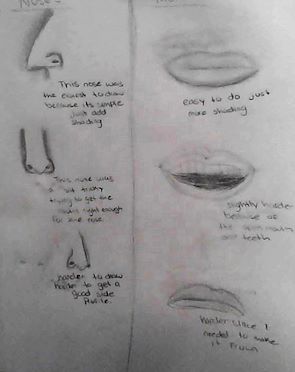 Noses
This nose was
the easiest to draw
because its simple
just add
shading
This nose was
a bit tricky
trying to get the
right enough
for the nose
harder to draw
harder to get a
good side
Profile.
easy to do just
more shading
slightly harder
because of
the open mouth
and teeth
harder since I
needed to make
it frown